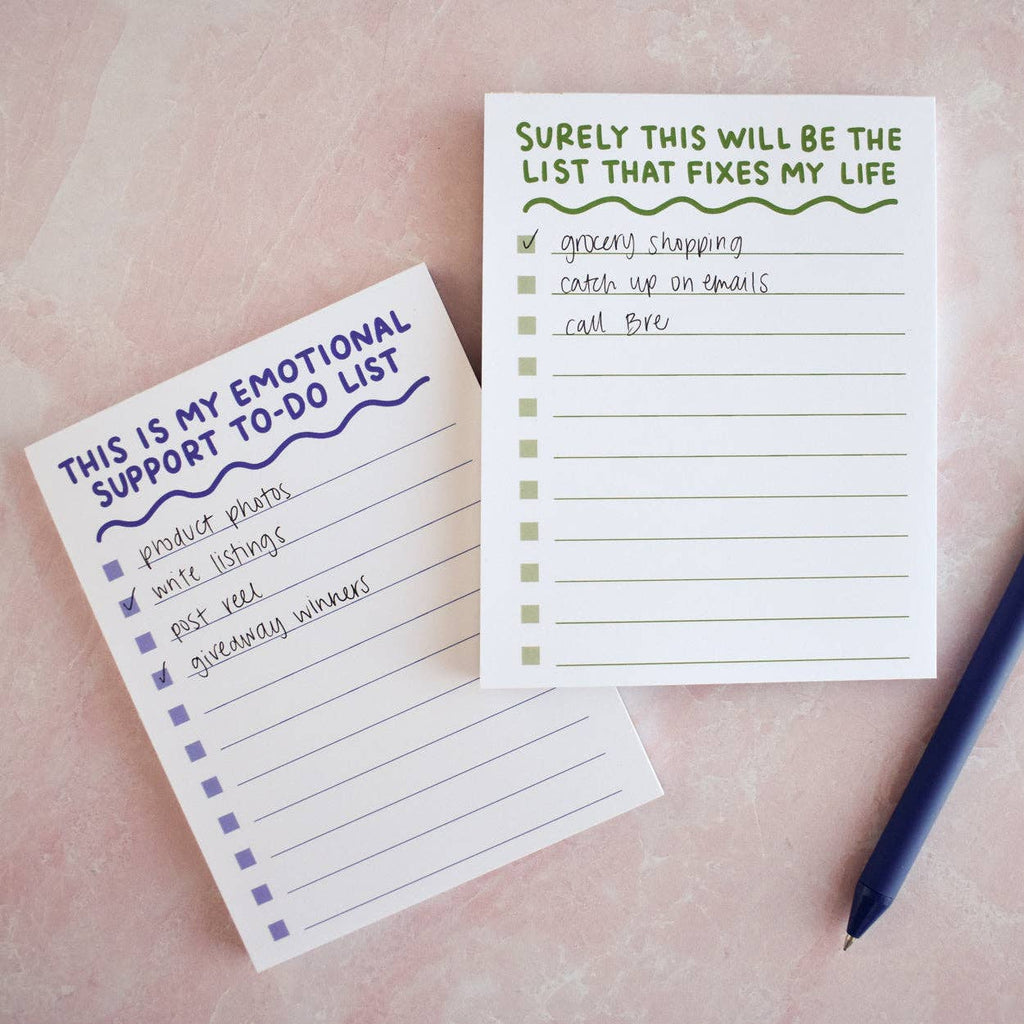 SURELY THIS WILL BE THE
LIST THAT FIXES MY LIFE
grocery shopping
catch up on emails
call Bre
THIS IS MY EMOTIONAL
SUPPORT TO-DO LIST
product photos
write listings
post reel
giveaway winners